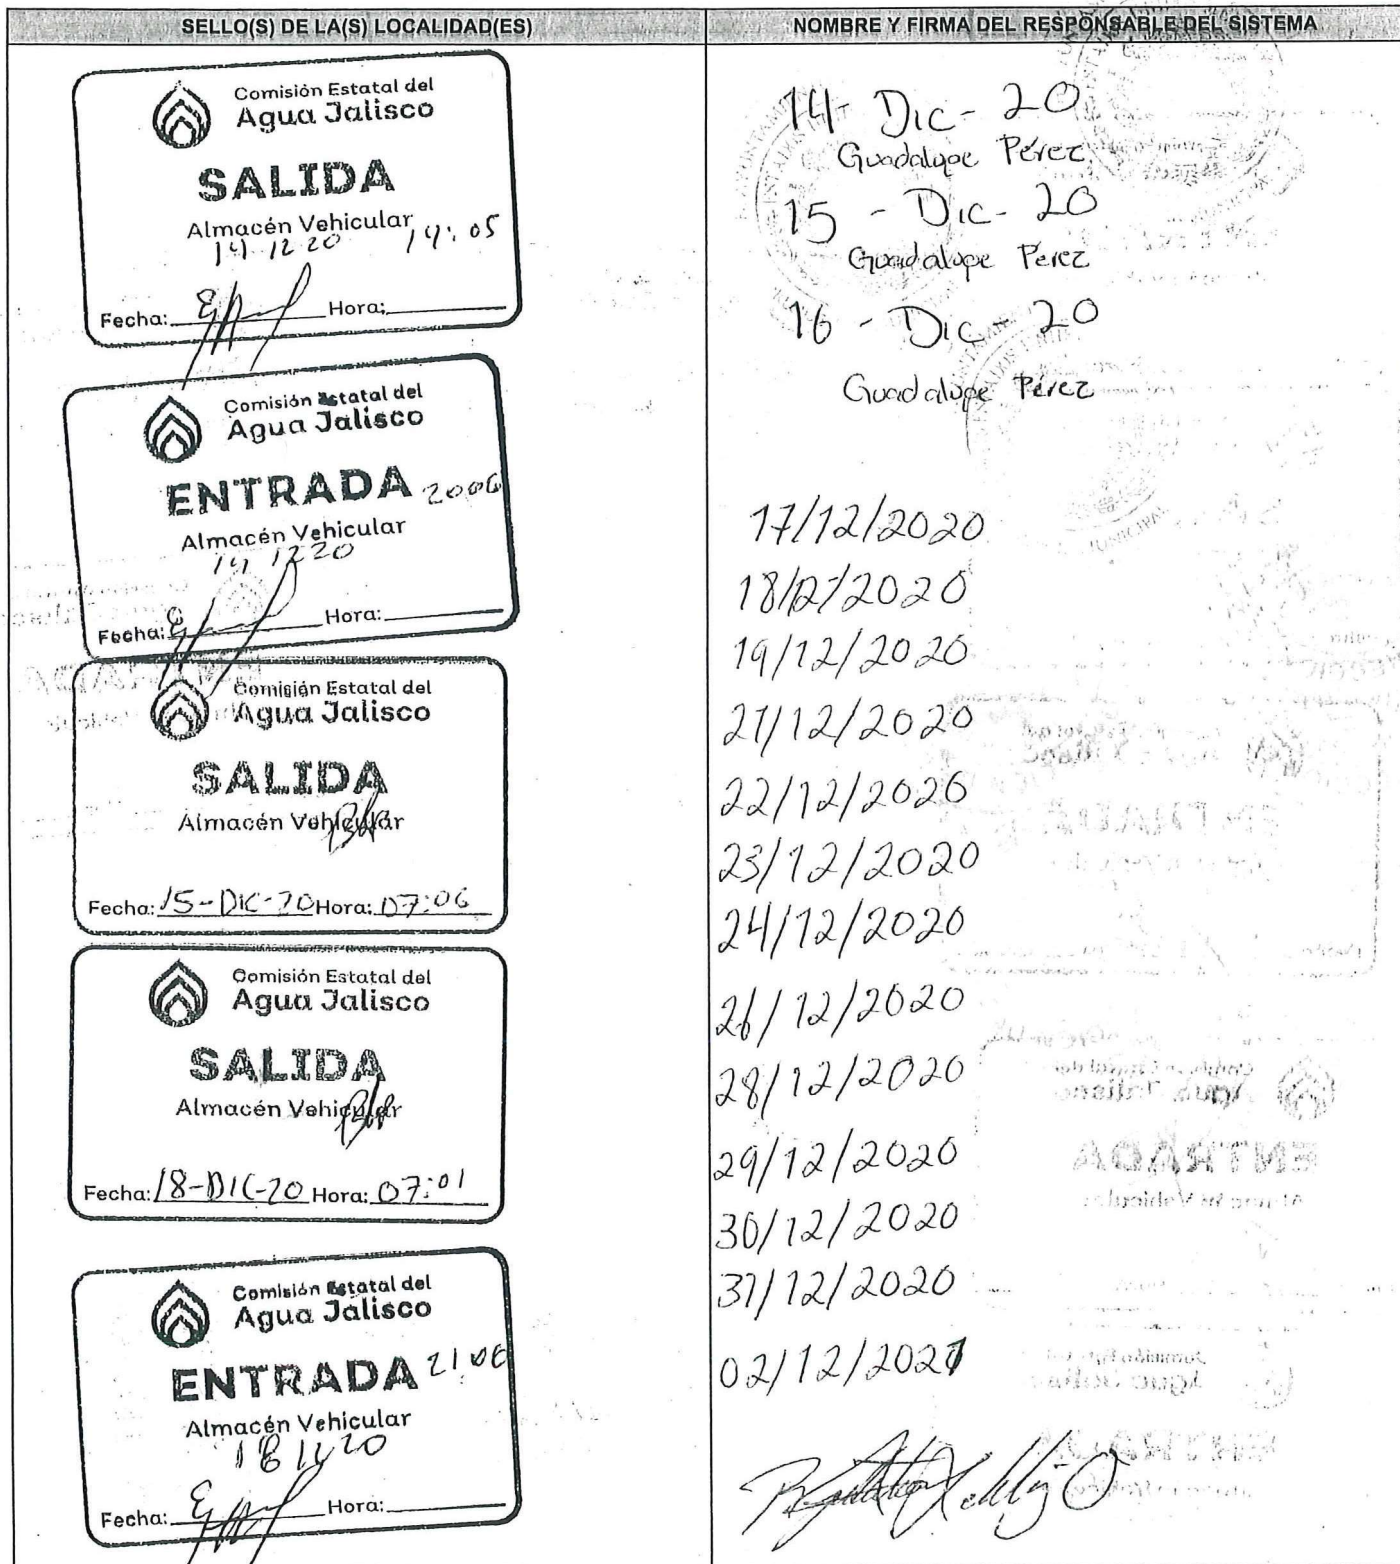 SELLO(S) DE LA(S) LOCALIDAD(ES)
Comisión Estatal del
Agua Jalisco
SALIDA
Almacén Vehicular
14 12 20 14:05
Fecha: Hora:
Comisión Estatal del
Agua Jalisco
ENTRADA 2006
Almacén Vehicular
14 12 20
Fecha: Hora:
Comisión Estatal del
Agua Jalisco
SALIDA
Almacén Vehicular
Fecha: 15-DIC-20 Hora: 07:06
Comisión Estatal del
Agua Jalisco
SALIDA
Almacén Vehicular
Fecha: 18-DIC-20 Hora: 07:01
Comisión Estatal del
Agua Jalisco
ENTRADA 21 06
Almacén Vehicular
Fecha: Hora:
NOMBRE Y FIRMA DEL RESPONSABLE DEL SISTEMA
14 - Dic - 20
Guadalupe Pérez
15 - Dic - 20
Guadalupe Perez
16 - Dic 20
Guadalupe Pérez
17/12/2020
18/12/2020
19/12/2020
21/12/2020
22/12/2020
23/12/2020
24/12/2020
26/12/2020
28/12/2020
29/12/2020
30/12/2020
31/12/2020
02/12/2021